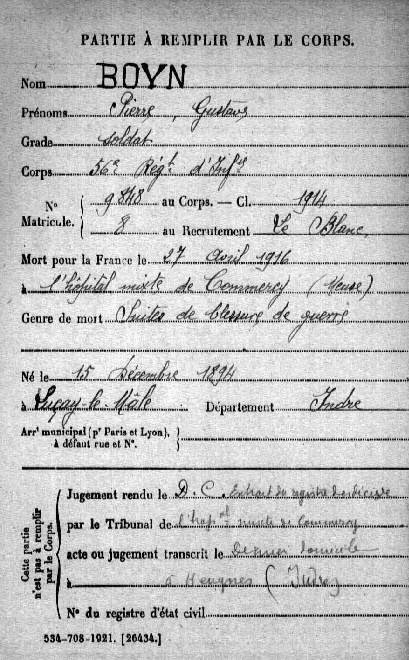 PARTIE À REMPLIR PAR LE CORPS.
Nom BOYN
Prénoms Pierre, Gustave
Grade soldat
Corps 56e Régt d'Infie
No Matricule. 9848 au Corps. — Cl. 1914
8 au Recrutement Le Blanc
Mort pour la France le 27 Avril 1916
à l'hôpital mixte de Commercy (Meuse)
Genre de mort Suites de blessure de guerre
Né le 15 Décembre 1894
à Luçay-le-Mâle Département Indre
Arrt municipal (pr Paris et Lyon),
à défaut rue et No.
Cette partie n'est pas à remplir par le Corps.
Jugement rendu le D. C. Extrait du registre des décès de
par le Tribunal de l'hôpal mixte de Commercy
acte ou jugement transcrit le Dernier domicile
à à Heugnes (Indre)
No du registre d'état civil
534-708-1921. [26434.]